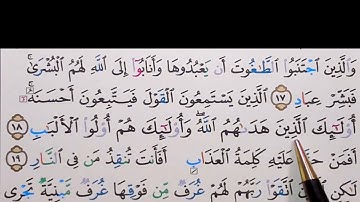 وَالَّذِينَ اجْتَنَبُوا الطَّاغُوتَ أَن يَعْبُدُوهَا وَأَنَابُوا إِلَى اللَّهِ لَهُمُ الْبُشْرَىٰ ۚ
فَبَشِّرْ عِبَادِ ١٧ الَّذِينَ يَسْتَمِعُونَ الْقَوْلَ فَيَتَّبِعُونَ أَحْسَنَهُ ۚ
أُولَٰئِكَ الَّذِينَ هَدَاهُمُ اللَّهُ ۖ وَأُولَٰئِكَ هُمْ أُولُوا الْأَلْبَابِ ١٨
أَفَمَنْ حَقَّ عَلَيْهِ كَلِمَةُ الْعَذَابِ أَفَأَنتَ تُنقِذُ مَن فِي النَّارِ ١٩
لَٰكِنِ الَّذِينَ اتَّقَوْا رَبَّهُمْ لَهُمْ غُرَفٌ مِّن فَوْقِهَا غُرَفٌ مَّبْنِيَّةٌ تَجْرِي